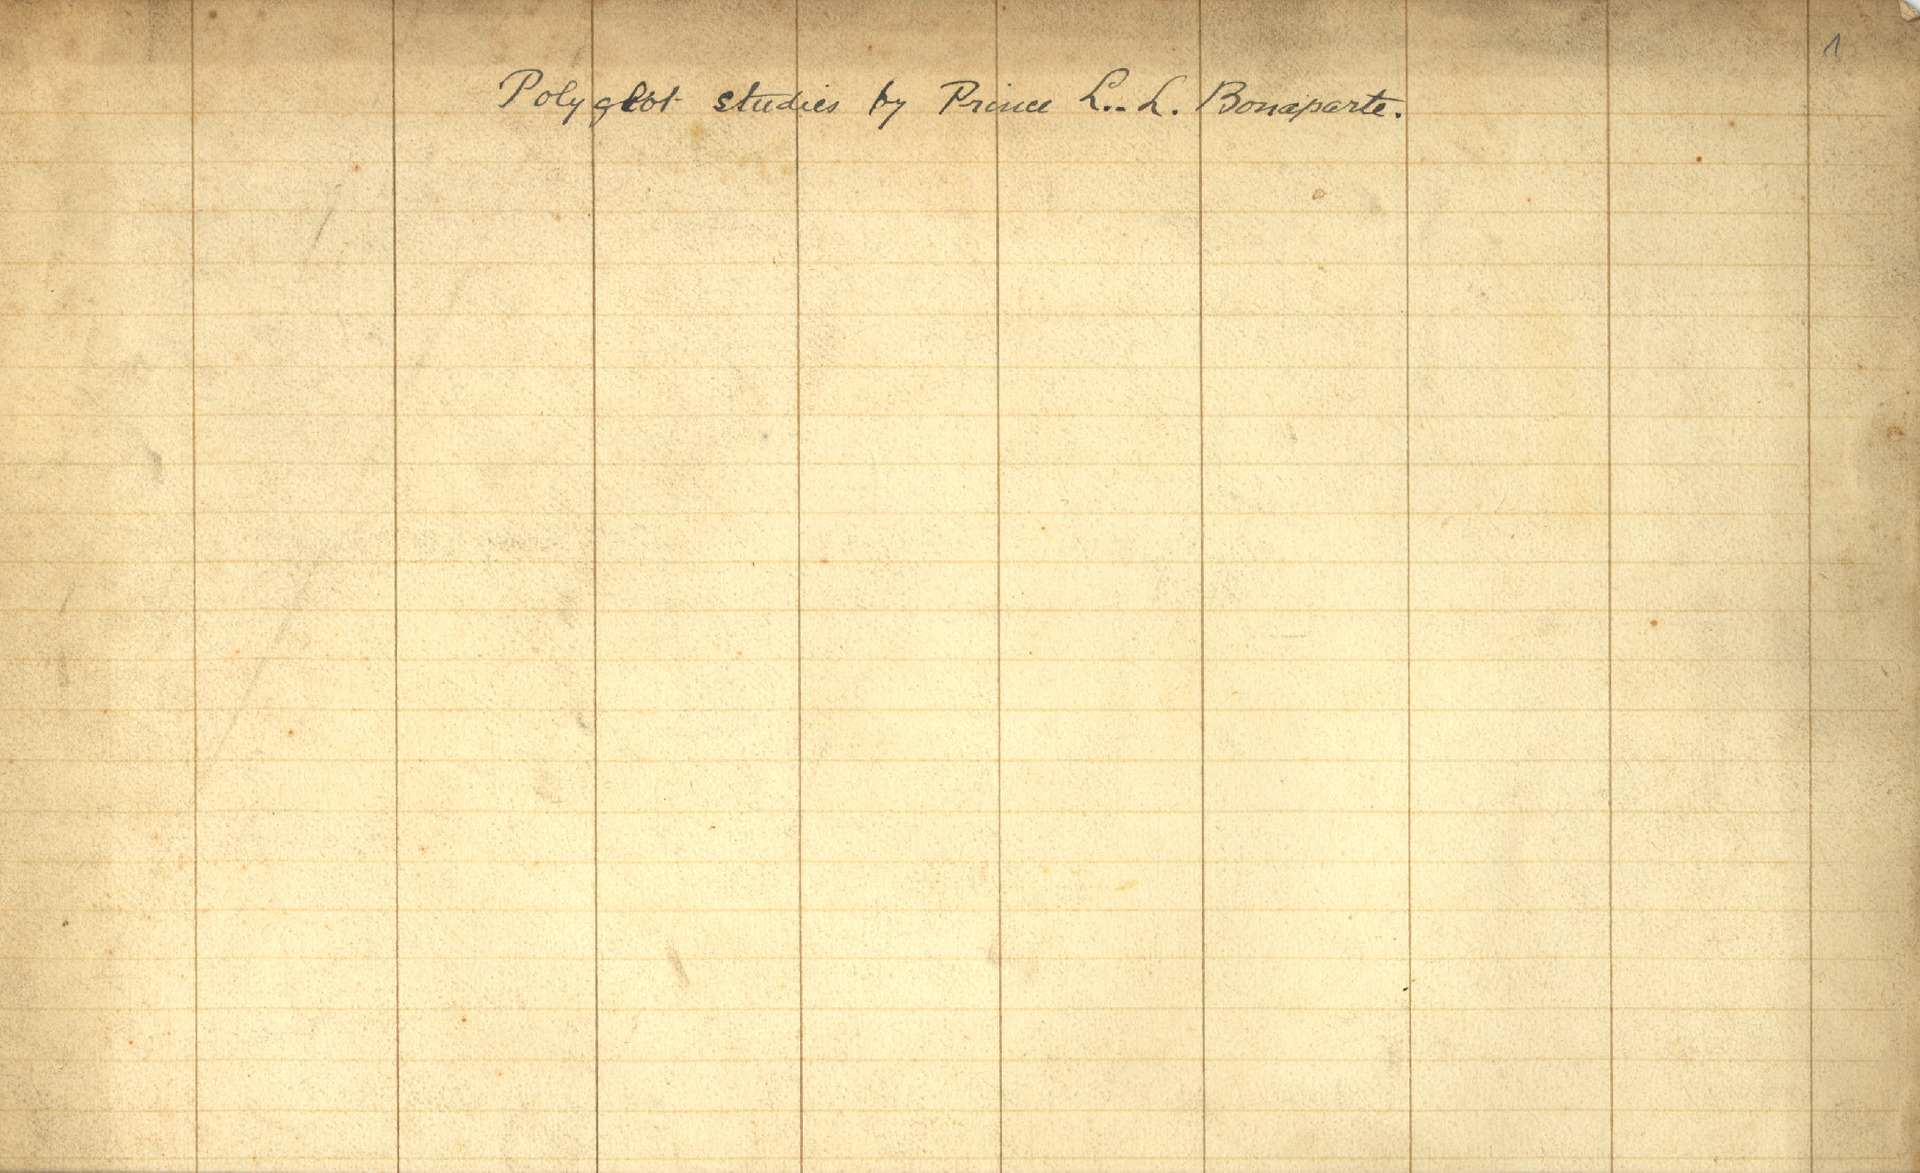 1
Polyglot studies by Prince L.-L. Bonaparte.